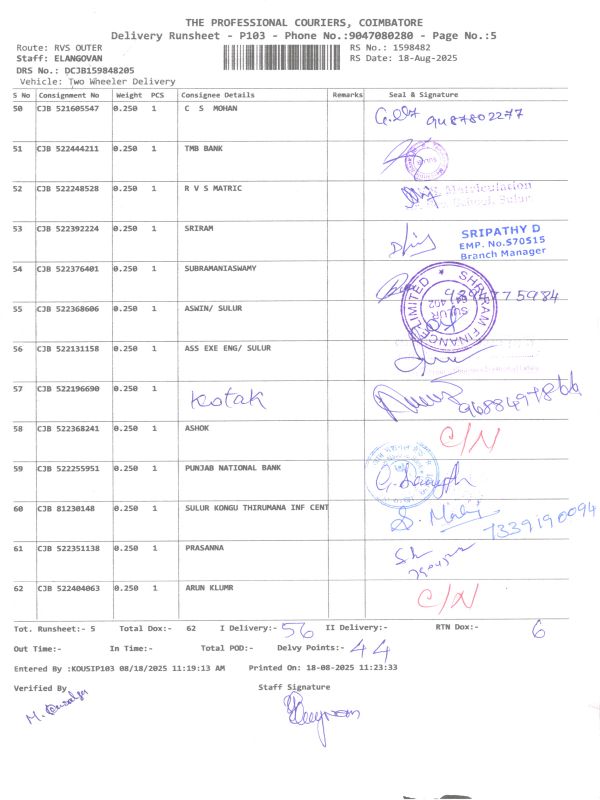 THE PROFESSIONAL COURIERS, COIMBATORE
Delivery Runsheet - P103 - Phone No.:9047080280 - Page No.:5
Route: RVS OUTER RS No.: 1598482
Staff: ELANGOVAN RS Date: 18-Aug-2025
DRS No.: DCJB159848205
Vehicle: Two Wheeler Delivery
S No Consignment No Weight PCS Consignee Details Remarks Seal & Signature
50 CJB 521605547 0.250 1 C S MOHAN 9487802277
51 CJB 522444211 0.250 1 TMB BANK
52 CJB 522248528 0.250 1 R V S MATRIC Matriculation
School, Sulur
53 CJB 522392224 0.250 1 SRIRAM SRIPATHY D
EMP. No.S70515
Branch Manager
54 CJB 522376401 0.250 1 SUBRAMANIASWAMY
SHRIRAM FINANCE LIMITED SULUR 641 402
55 CJB 522368606 0.250 1 ASWIN/ SULUR
56 CJB 522131158 0.250 1 ASS EXE ENG/ SULUR
57 CJB 522196690 0.250 1 kotak
58 CJB 522368241 0.250 1 ASHOK C/N
59 CJB 522255951 0.250 1 PUNJAB NATIONAL BANK
60 CJB 81230148 0.250 1 SULUR KONGU THIRUMANA INF CENT 7339190094
61 CJB 522351138 0.250 1 PRASANNA
62 CJB 522404063 0.250 1 ARUN KLUMR C/N
Tot. Runsheet:- 5 Total Dox:- 62 I Delivery:- 56 II Delivery:- RTN Dox:- 6
Out Time:- In Time:- Total POD:- Delvy Points:- 44
Entered By :KOUSIP103 08/18/2025 11:19:13 AM Printed On: 18-08-2025 11:23:33
Verified By Staff Signature